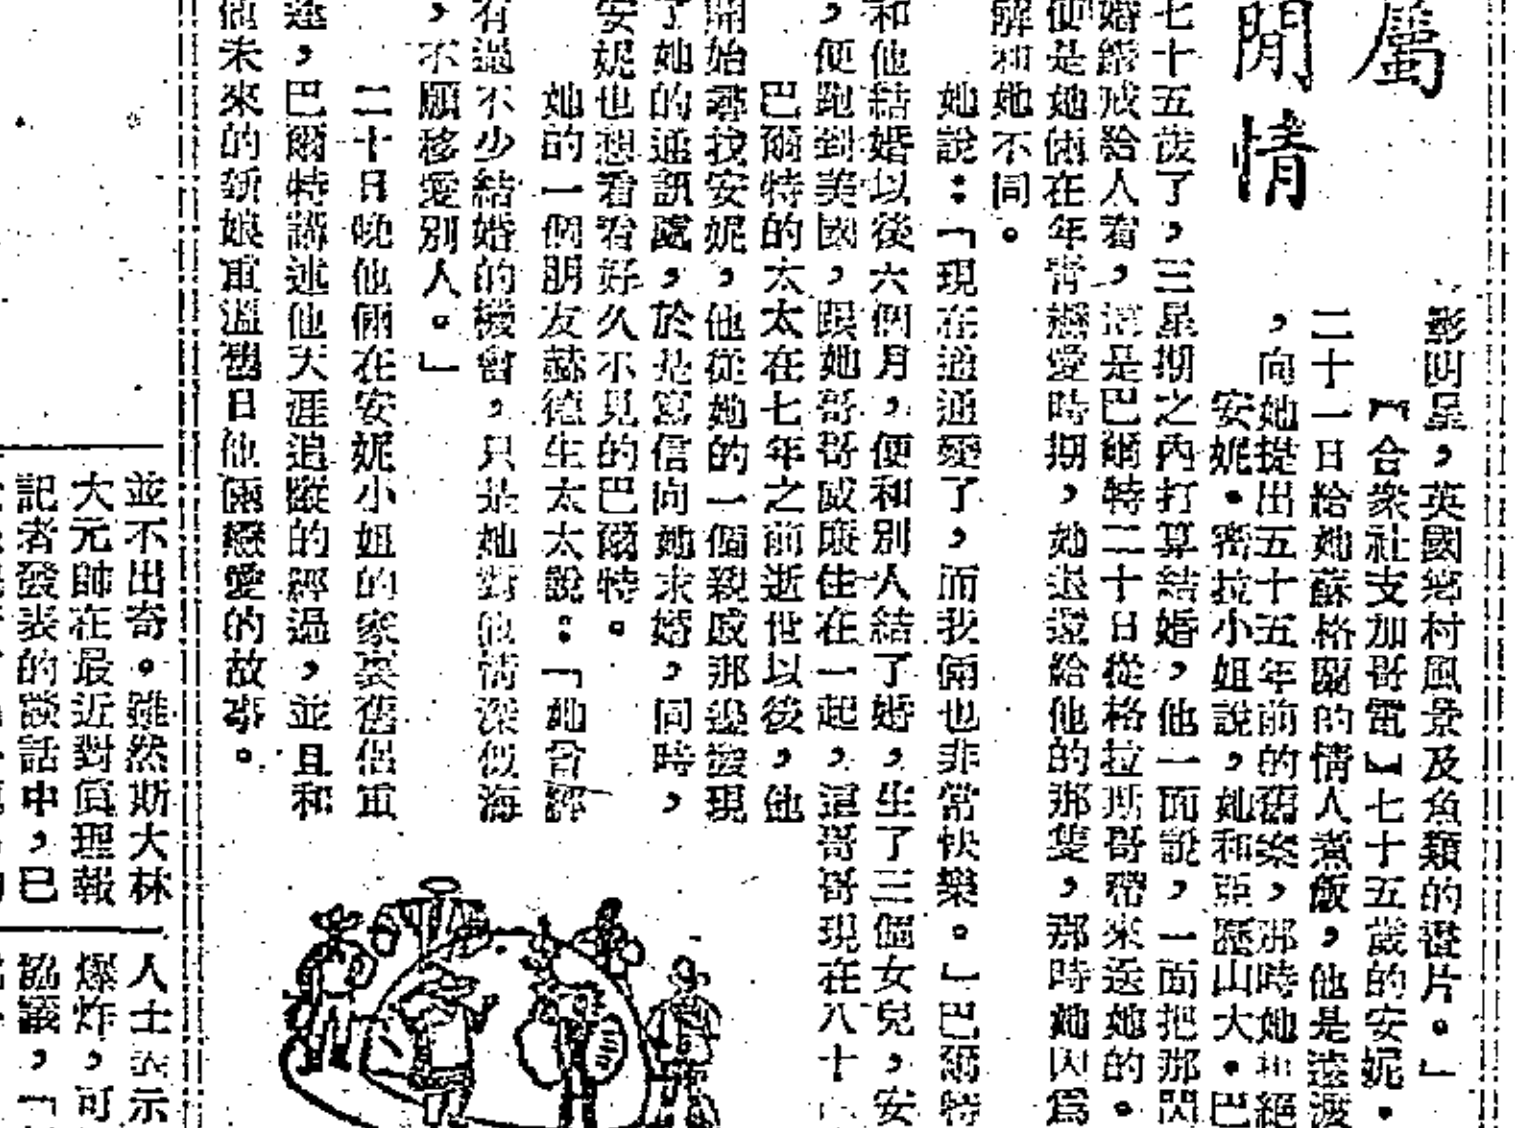 屬
閒情
影明星,英國鄉村風景及魚類的證片。」
【合衆社支加哥電】七十五歲的安妮・
二十一日給她蘇格蘭的情人煮飯,他是遠渡
,向她提出五十五年前的舊案,那時她和絕
安妮・密拉小姐說,她和亞歷山大・巴
七十五歲了,三星期之內打算結婚,他一面說,一面把那閃
婚鑽戒給人看,這是巴爾特二十日從格拉斯哥帶來送她的。
便是她倆在年青戀愛時期,她退還給他的那隻,那時她因爲
解和她不同。
她說:「現在通通變了,而我倆也非常快樂。」巴爾特
和他結婚以後六個月,便和別人結了婚,生了三個女兒,安
,便跑到美國,跟她哥哥威廉住在一起,這哥哥現在八十
巴爾特的太太在七年之前逝世以後,他
開始尋找安妮,他從她的一個親戚那邊發現
了她的通訊處,於是寫信向她求婚,同時,
安妮也想看看好久不見的巴爾特。
她的一個朋友赫德生太太說:「她曾經
有過不少結婚的機會,只是她對他情深似海
,不願移愛別人。」
二十日晚他倆在安妮小姐的家裏舊侶重
逢,巴爾特講述他天涯追蹤的經過,並且和
他未來的新娘重溫舊日他倆戀愛的故事。
並不出奇。雖然斯大林
大元帥在最近對眞理報
記者發表的談話中,已
人士表示
爆炸,可
協議,「